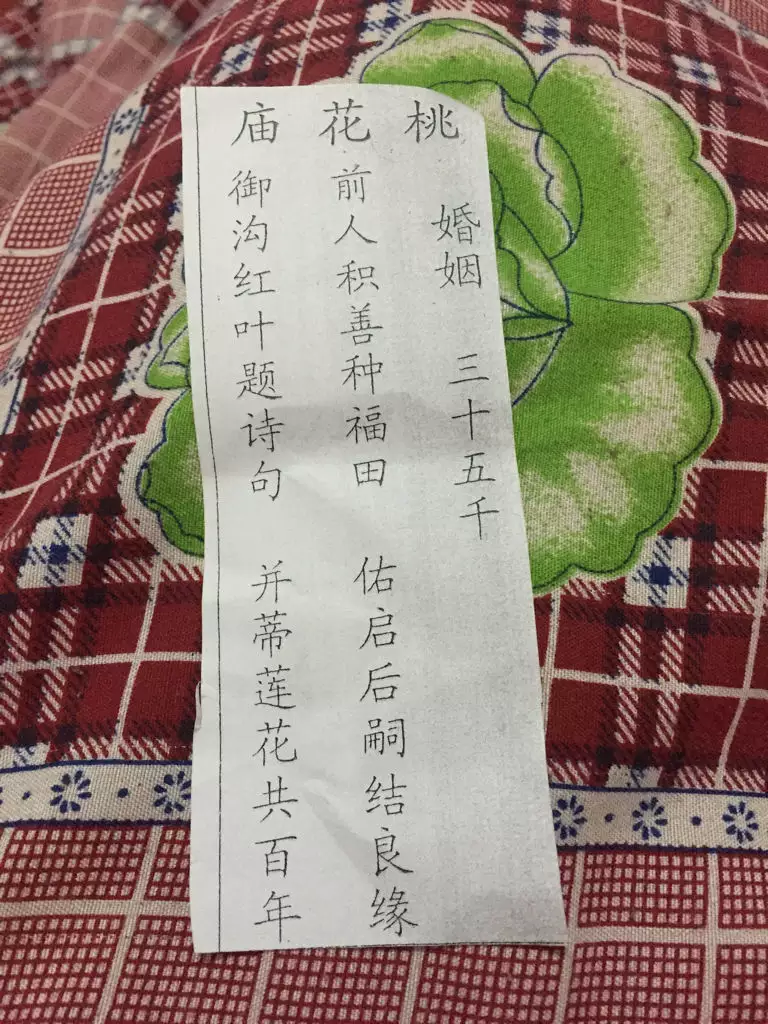 桃花庙
婚姻 三十五千
前人积善种福田 佑启后嗣结良缘
御沟红叶题诗句 并蒂莲花共百年